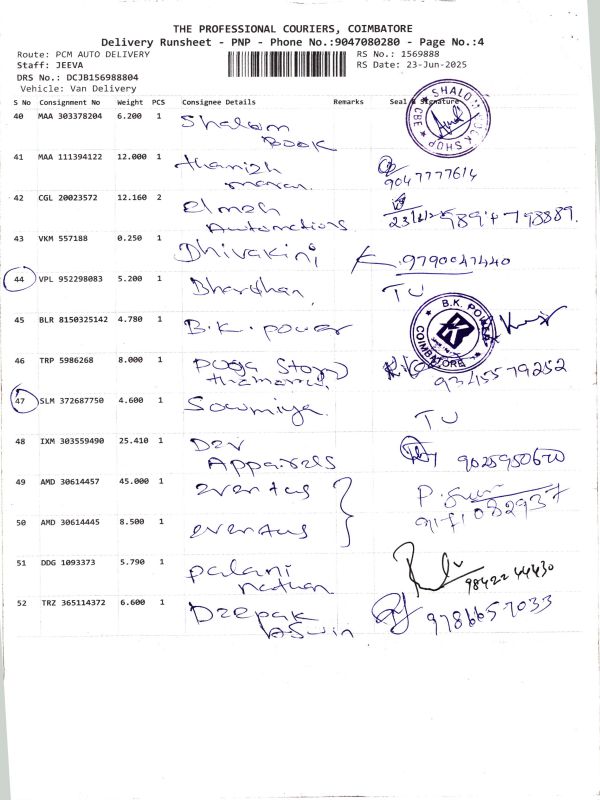 THE PROFESSIONAL COURIERS, COIMBATORE
Delivery Runsheet - PNP - Phone No.:9047080280 - Page No.:4
Route: PCM AUTO DELIVERY RS No.: 1569888
Staff: JEEVA RS Date: 23-Jun-2025
DRS No.: DCJB156988804
Vehicle: Van Delivery
S No Consignment No Weight PCS Consignee Details Remarks Seal & Signature
40 MAA 303378204 6.200 1 Shalom
Book
SHALOM BOOK SHOP CBE
41 MAA 111394122 12.000 1 thanish
maran.
9047777614
42 CGL 20023572 12.160 2 elmech
Automations
43 VKM 557188 0.250 1 Dhivakini
44 VPL 952298083 5.200 1 Bhardhan, TU
45 BLR 8150325142 4.780 1 B.K. power
B.K. POWER COIMBATORE
46 TRP 5986268 8.000 1
9345579252
47 SLM 372687750 4.600 1 Sowmiya. TU
48 IXM 303559490 25.410 1 Dev
Apparels
49 AMD 30614457 45.000 1 eventus
9171082937
50 AMD 30614445 8.500 1 eventus
51 DDG 1093373 5.790 1 palani
nathan
9842244430
52 TRZ 365114372 6.600 1 Deepak
Aswin
9786657033